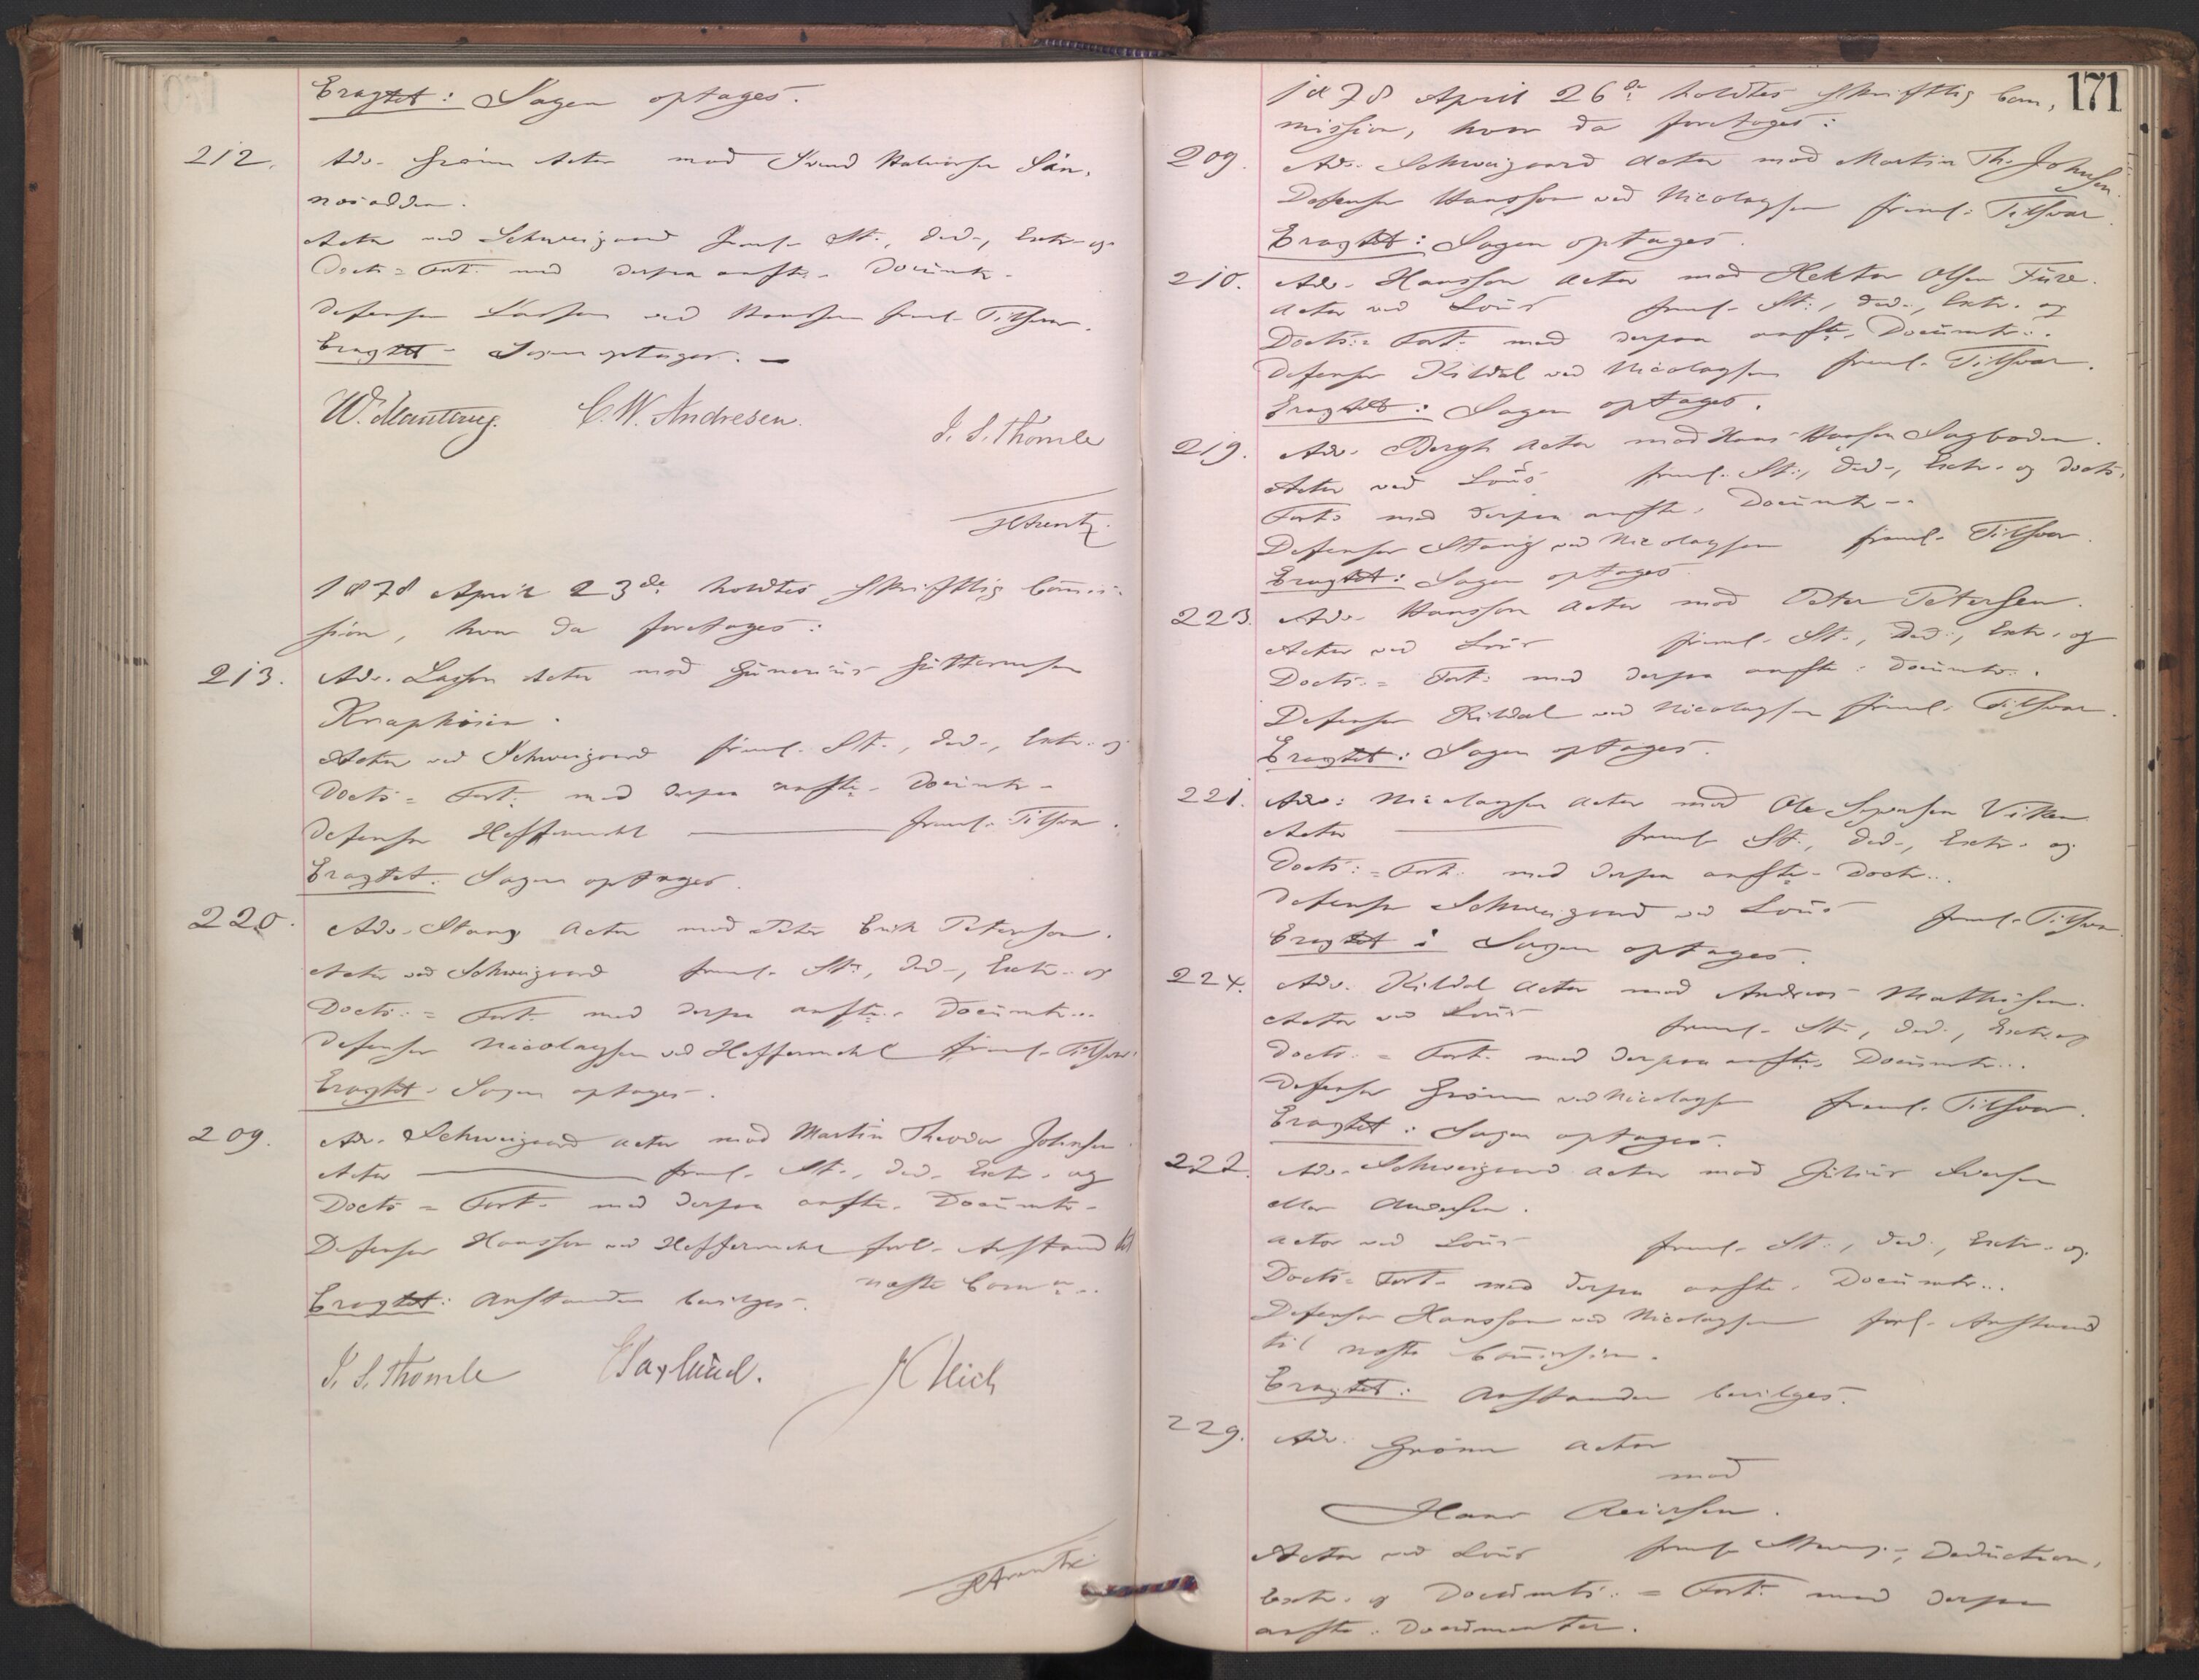 Eragtet: Sagen optages.
212. Adv. Grönn Actor mod Svend Halvorsen Sön-
Actor ved Schweigaard freml. St., Ded., Extr. og
Docts = Fort. med derpaa anfte. Documtr.
Defensor Lasson ved Hansson freml. Tilsvar.
Eragtet - Sagen optages. —
W. Manthey. C. W. Andresen. J. S. Thomle
H. Arentz.
1878 April 23de holdtes skriftlig Commis-
sion, hvor da foretoges:
213. Adv. Lasson Actor mod Gunerius Guttormsen
Knaphösen.
Actor ved Schweigaard freml. St., Ded., Extr. og
Docts = Fort. med derpaa anfte. Documtr.
Defensor Heffermehl — freml. Tilsvar.
Eragtet. Sagen optages.
220. Adv. Stang Actor mod Peter Erik Peterson.
Actor ved Schweigaard freml. St., Ded., Extr. og
Docts. = Fort. med derpaa anfte. Documtr..
Defensor Nicolaysen ved Heffermehl freml. Tilsvar.
Eragtet. Sagen optages.
209. Adv. Schweigaard Actor mod Martin Theodor Johnsen
Actor — freml. St., Ded. Extr. og
Docts = Fort. med derpaa anfte. Documtr.
Defensor Hansson ved Heffermehl forl. Anstand til
næste Comm..
Eragtet: Anstanden bevilges.
J. S. Thomle E Saxlund.
H. Arentz
171
1878 April 26de holdtes skriftlig Com-
mission, hvor da foretoges:
209. Adv. Schweigaard Actor mod Martin Th. Johnsen.
Defensor Hansson ved Nicolaysen freml. Tilsvar.
Eragtet: Sagen optages.
210. Adv. Hansson Actor mod Hektor Olsen Fure.
Actor ved Lous freml. St., Ded., Extr. og
Docts. = Fort. med derpaa anfte. Documtr..
Defensor Kildal ved Nicolaysen freml. Tilsvar.
Eragtet: Sagen optages.
219. Adv. Bergh Actor mod Hans Hansen Sagboden.
Actor ved Lous freml. St., Ded., Extr. og Docts.
Fort. med derpaa anfte. Documtr..
Defensor Stang ved Nicolaysen freml. Tilsvar.
Eragtet: Sagen optages.
223. Adv. Hansson Actor mod Peter Petersen.
Actor ved Lous freml. St., Ded., Extr. og
Docts. = Fort. med derpaa anfte. Documtr..
Defensor Kildal ved Nicolaysen freml. Tilsvar.
Eragtet: Sagen optages.
221. Adv. Nicolaysen Actor mod Ole Syversen Viken
Actor — freml. St., Ded., Extr. og
Docts. = Fort. med derpaa anfte. Doctr..
Defensor Schweigaard ved Lous freml. Tilsvar.
Eragtet: Sagen optages.
224. Adv. Kildal Actor mod Andreas Mathisen.
Actor ved Lous freml. St., Ded., Extr. og
Docts. = Fort. med derpaa anfte. Documtr..
Defensor Grönn ved Nicolaysen freml. Tilsvar.
Eragtet: Sagen optages.
227. Adv. Schweigaard Actor mod Julius Iversen
eller Andersen.
Actor ved Lous freml. St., Ded., Extr. og
Docts = Fort. med derpaa anfte. Documtr..
Defensor Hansson ved Nicolaysen forl. Anstand
til næste Commission.
Eragtet: Anstanden bevilges.
229. Adv. Grönn Actor
mod
Hans Reiersen.
Actor ved Lous freml. Stævn., Deduction,
Extr. og Documts. = Fort. med derpaa
anfte. Documenter.